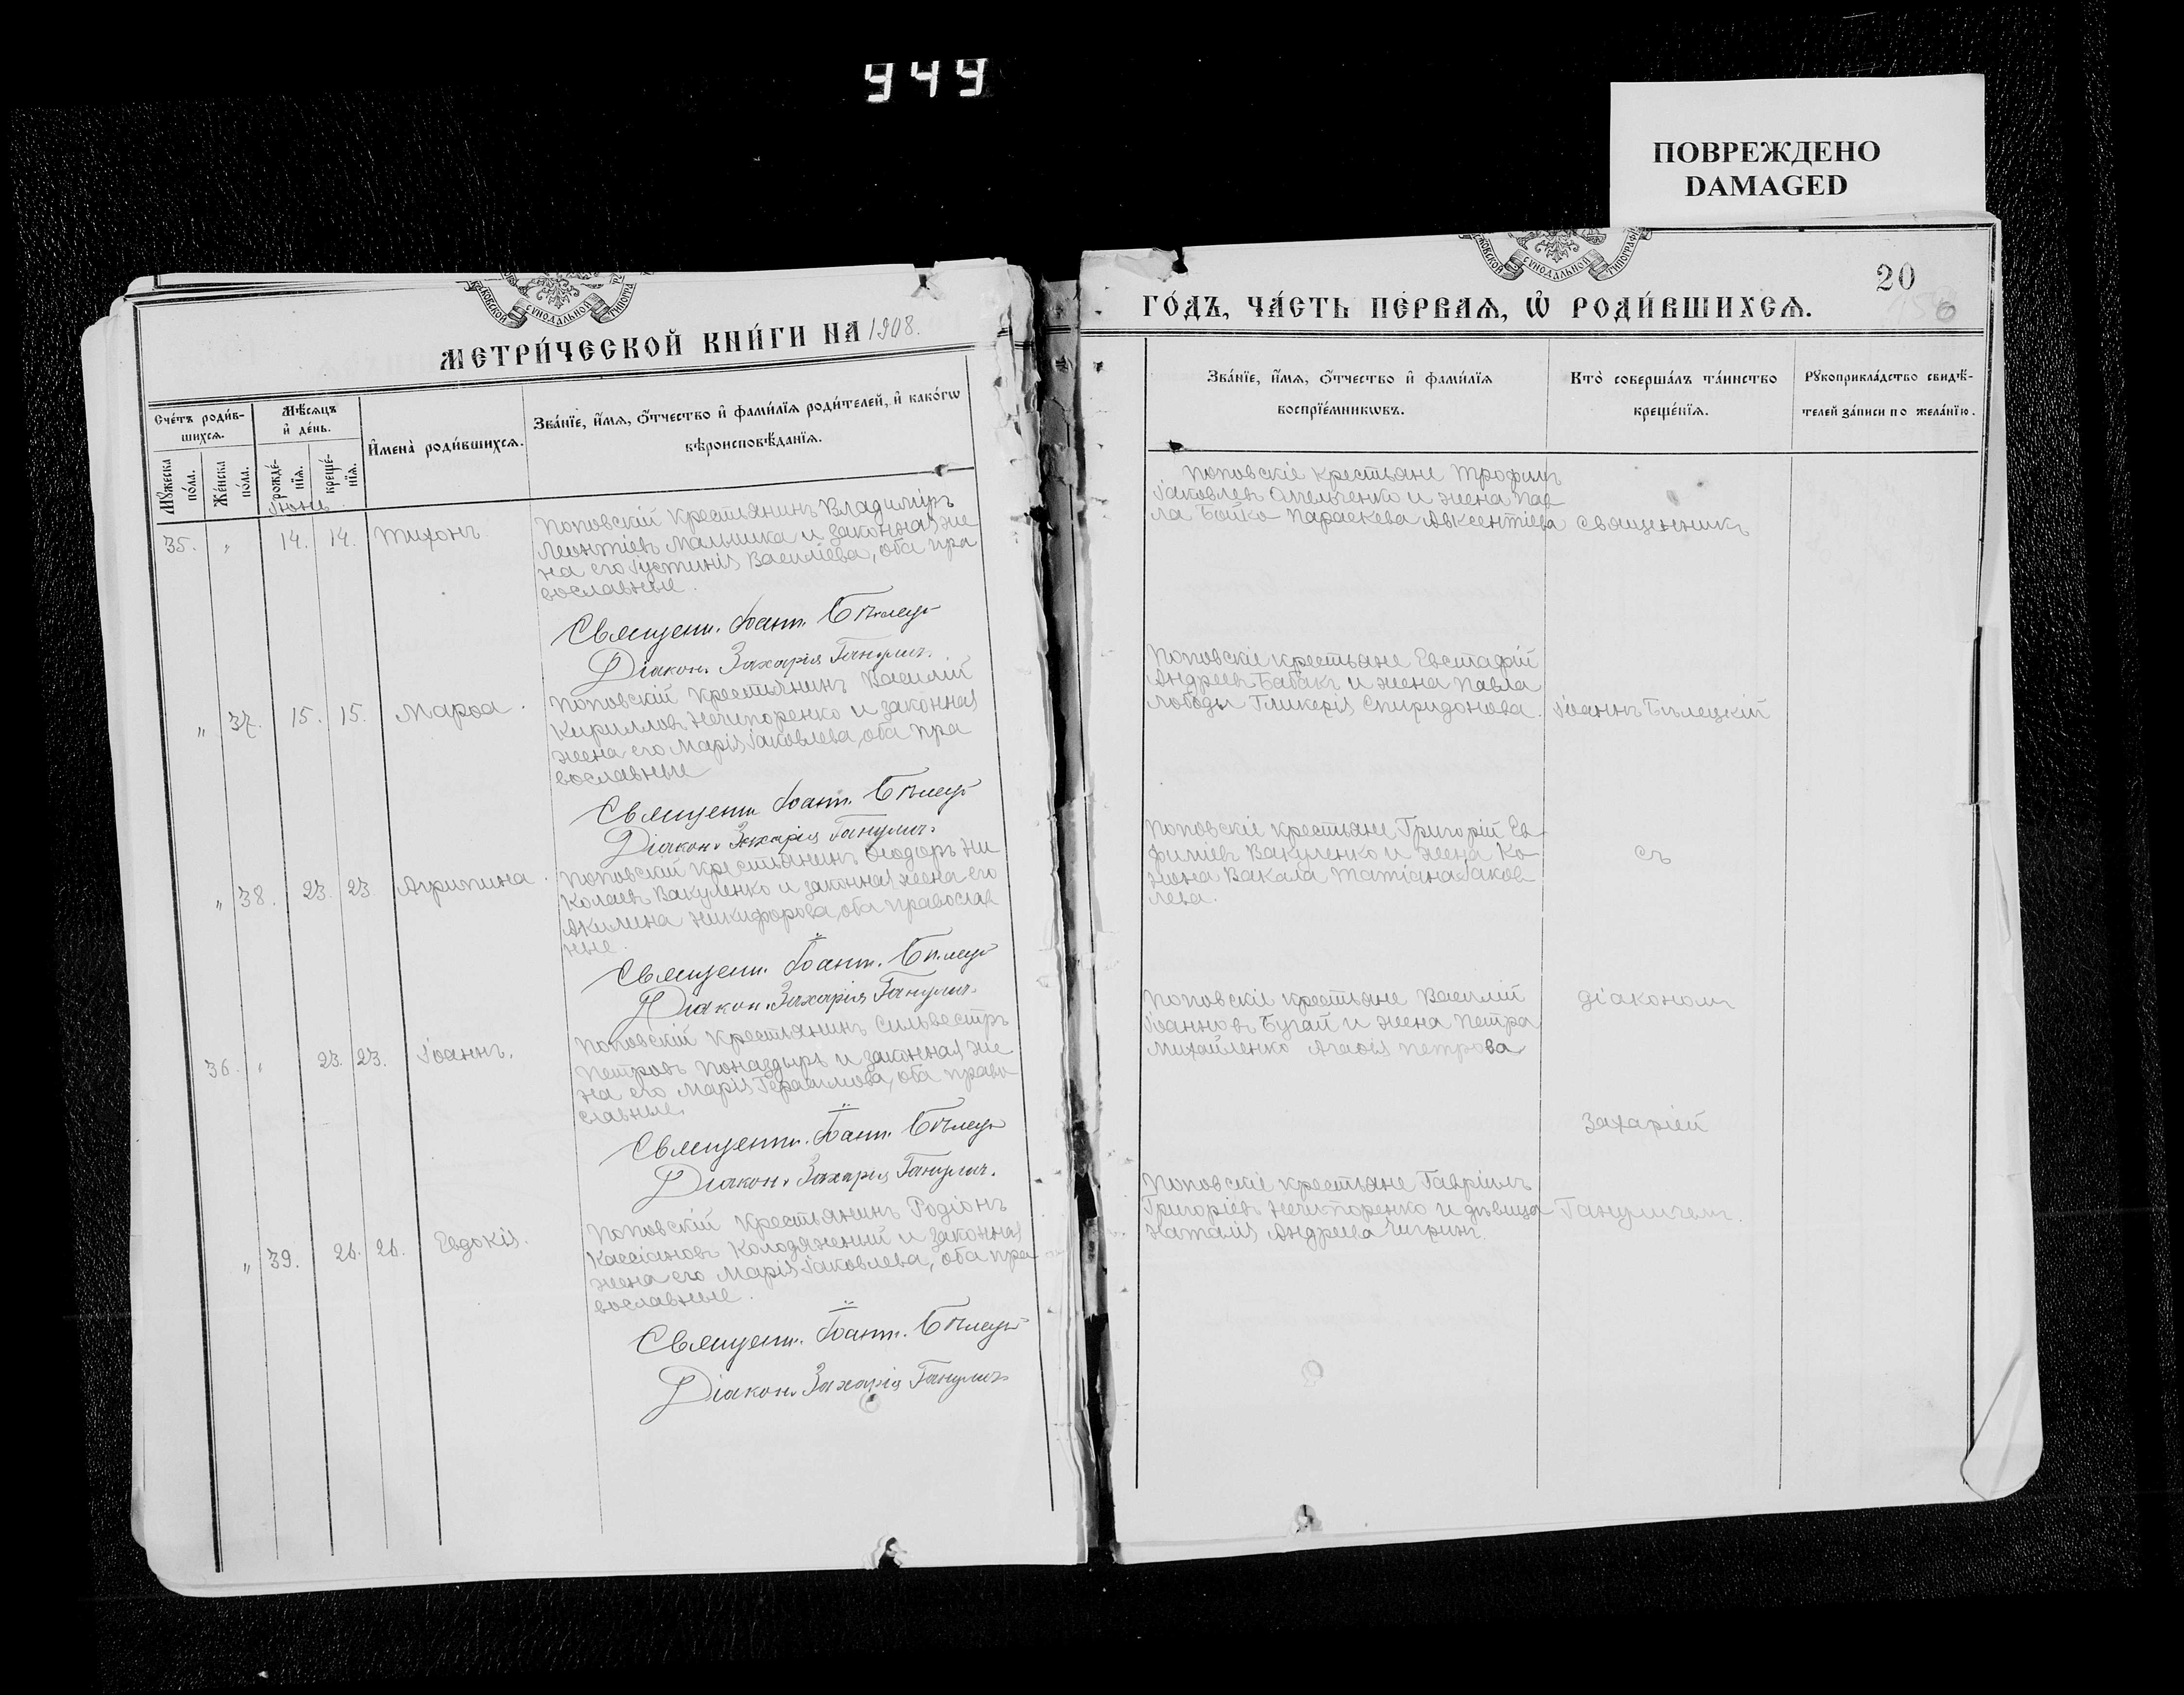 949
ПОВРЕЖДЕНО
DAMAGED
20
МЕТРИ́ЧЕСКОЙ КНИ́ГИ НА 1908.
ГО́ДЪ, ЧА́СТЬ ПЕ́РВАѦ, Ѡ҆ РОДИ́ВШИХСѦ.
Сче́тъ роди́в-
шихсѧ.
Мꙋ́жеска по́ла.
Же́нска по́ла.
Мѣ́сѧцъ и҆ де́нь.
рожде́-
нїѧ.
креще́-
нїѧ.
И҆мена̀ роди́вшихсѧ.
Зва́нїе, и҆́мѧ, ѻ҆́тчество и҆ фами́лїѧ роди́телей, и҆ како́гѡ
вѣроисповѣ́данїѧ.
Зва́нїе, и҆́мѧ, ѻ҆́тчество и҆ фами́лїѧ
воспрїе́мникѡвъ.
Кто̀ соверша́лъ та́инство
креще́нїѧ.
Рꙋкоприкла́дство свидѣ́-
телей за́писи по жела́нїю.
Іюнь
35. " 14. 14. Тихонъ
Поповскій крестьянинъ Владиміръ
Леонтіевъ Малышка и законная же
на его Іустинія Василіева, оба пра
вославные.
Священ. Іоанн. Бѣлец
Діакон. Захарія Ганулич.
Поповскіе крестьяне Трофимъ
Іаковлевъ Омельченко и жена Пав
ла Бойко Параскева Авксентіева
Священникъ
" 37. 15. 15. Марѳа.
Поповскій крестьянинъ Василій
Кирилловъ Нечипоренко и законная
жена его Марія Іаковлева, оба пра
вославные
Священ. Іоанн. Бѣлец
Діакон. Захарія Ганулич.
Поповскіе крестьяне Евстафій
Андреевъ Бабакъ и жена Павла
Лободы Гликерія Спиридонова.
Іоаннъ Бѣлецкій
" 38. 23. 23. Агрипина.
Поповскій крестьянинъ Ѳеодоръ Ни
колаевъ Вакуленко и законная жена его
Акилина Никифорова, оба православ
ные.
Священ. Іоанн. Бѣлец
Діакон. Захарія Ганулич.
Поповскіе крестьяне Григорій Ев
фиміевъ Вакуленко и жена Ко
нона Вакала Татіана Іаков
лева.
съ
36. " 23. 23. Іоаннъ.
Поповскій крестьянинъ Сильвестръ
Петровъ Поназдыръ и законная же
на его Марія Герасимова, оба право
славные.
Священ. Іоанн. Бѣлец
Діакон. Захарія Ганулич.
Поповскіе крестьяне Василій
Іоанновъ Бугай и жена Петра
Михайленко Агаѳія Петрова
діакономъ
Захаріей
" 39. 26. 26. Евдокія.
Поповскій крестьянинъ Родіонъ
Кассіановъ Колодяжный и законная
жена его Марія Іаковлева, оба пра
вославные.
Священ. Іоанн. Бѣлец
Діакон. Захарія Ганулич
Поповскіе крестьяне Гавріилъ
Григоріевъ Нечипоренко и дѣвица
Наталія Андреева Чигринъ.
Гануличемъ.